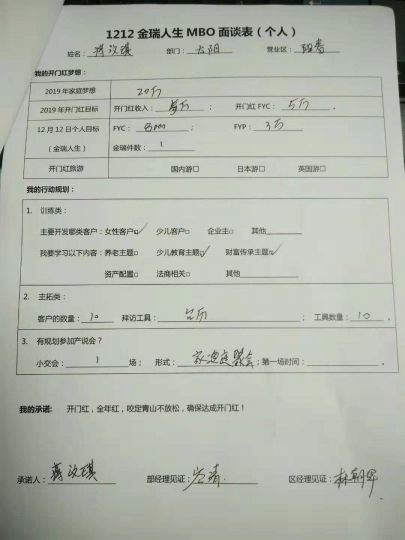 1212金瑞人生 MBO 面谈表（个人）
姓名：蒋汝琪 部门：太阳 营业区：
我的开门红梦想：
2019年家庭梦想 20万
2019年开门红目标 开门红收入：万； 开门红 FYC：5万。
12月12日个人目标 FYC：8000 FYP：3万
（金瑞人生） 金瑞件数：1
开门红旅游 国内游□ 日本游□ 英国游□
我的行动规划：
1. 训练类：
主要开发哪类客户：女性客户☑ 少儿客户□ 企业主□ 其他
我要学习以下内容：养老主题□ 少儿教育主题☑ 财富传承主题☑
资产配置□ 法商相关□ 其他
2. 主拓类：
客户的数量：30 拜访工具：台历； 工具数量：10。
3. 有规划参加产说会？
小交会：1场； 形式：家庭聚会；第一场时间：。
我的承诺： 开门红，全年红，咬定青山不放松，确保达成开门红！
承诺人：蒋汝琪 部经理见证： 区经理见证：